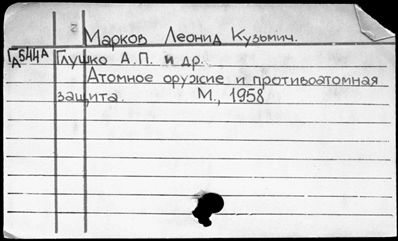 Марков Леонид Кузьмич.
Глушко А.П. и др.
Атомное оружие и противоатомная
защита. М., 1958